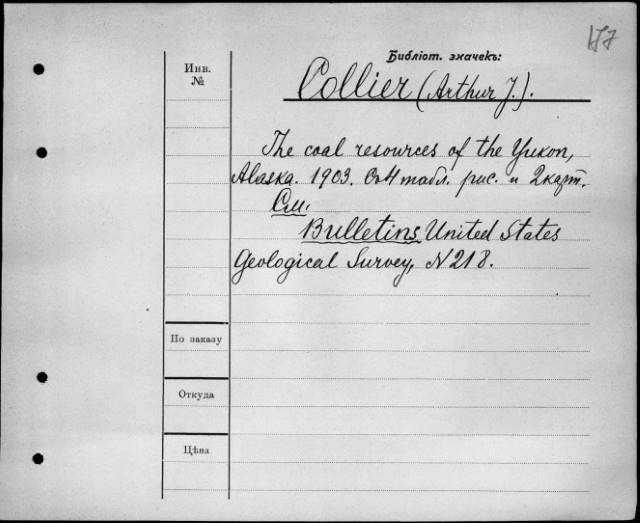 Библiот. значекъ:
Инв.
№
Collier (Arthur J.).
The coal resources of the Yukon,
Alaska. 1903. Съ 4 табл. рис. и 2 карт.
См.
Bulletins United States
Geological Survey, N 218.
По заказу
Откуда
Цѣна